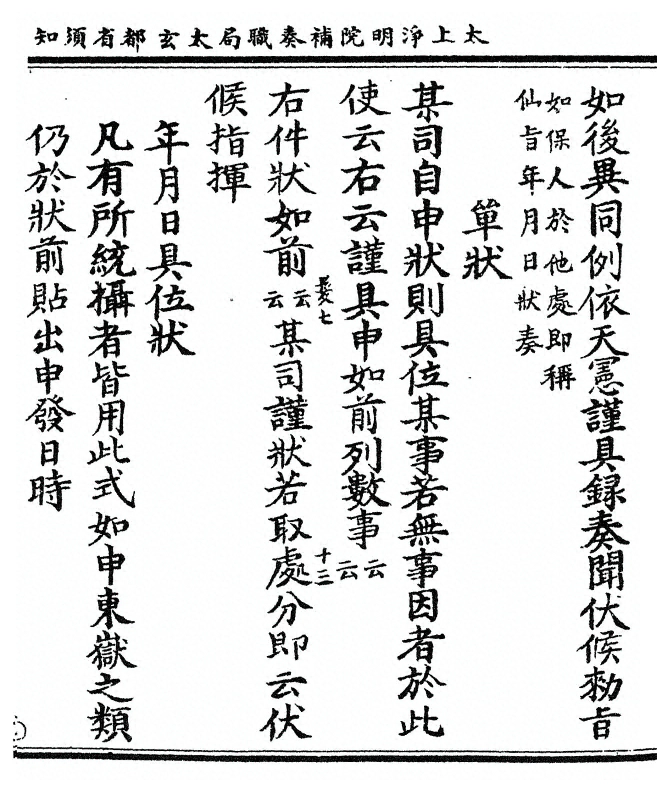 太上淨明院補奏職局太玄都省須知
如後異同例依天憲謹具録奏聞伏候勑旨
如保人於他處即稱
仙旨年月日狀奏
單狀
某司自申狀則具位某事若無事因者於此
使云右云謹具申如前列數事云云
右件狀如前云云某司謹狀若取處分即云伏
候指揮
年月日具位狀
凡有所統攝者皆用此式如申東嶽之類
仍於狀前貼出申發日時
十三